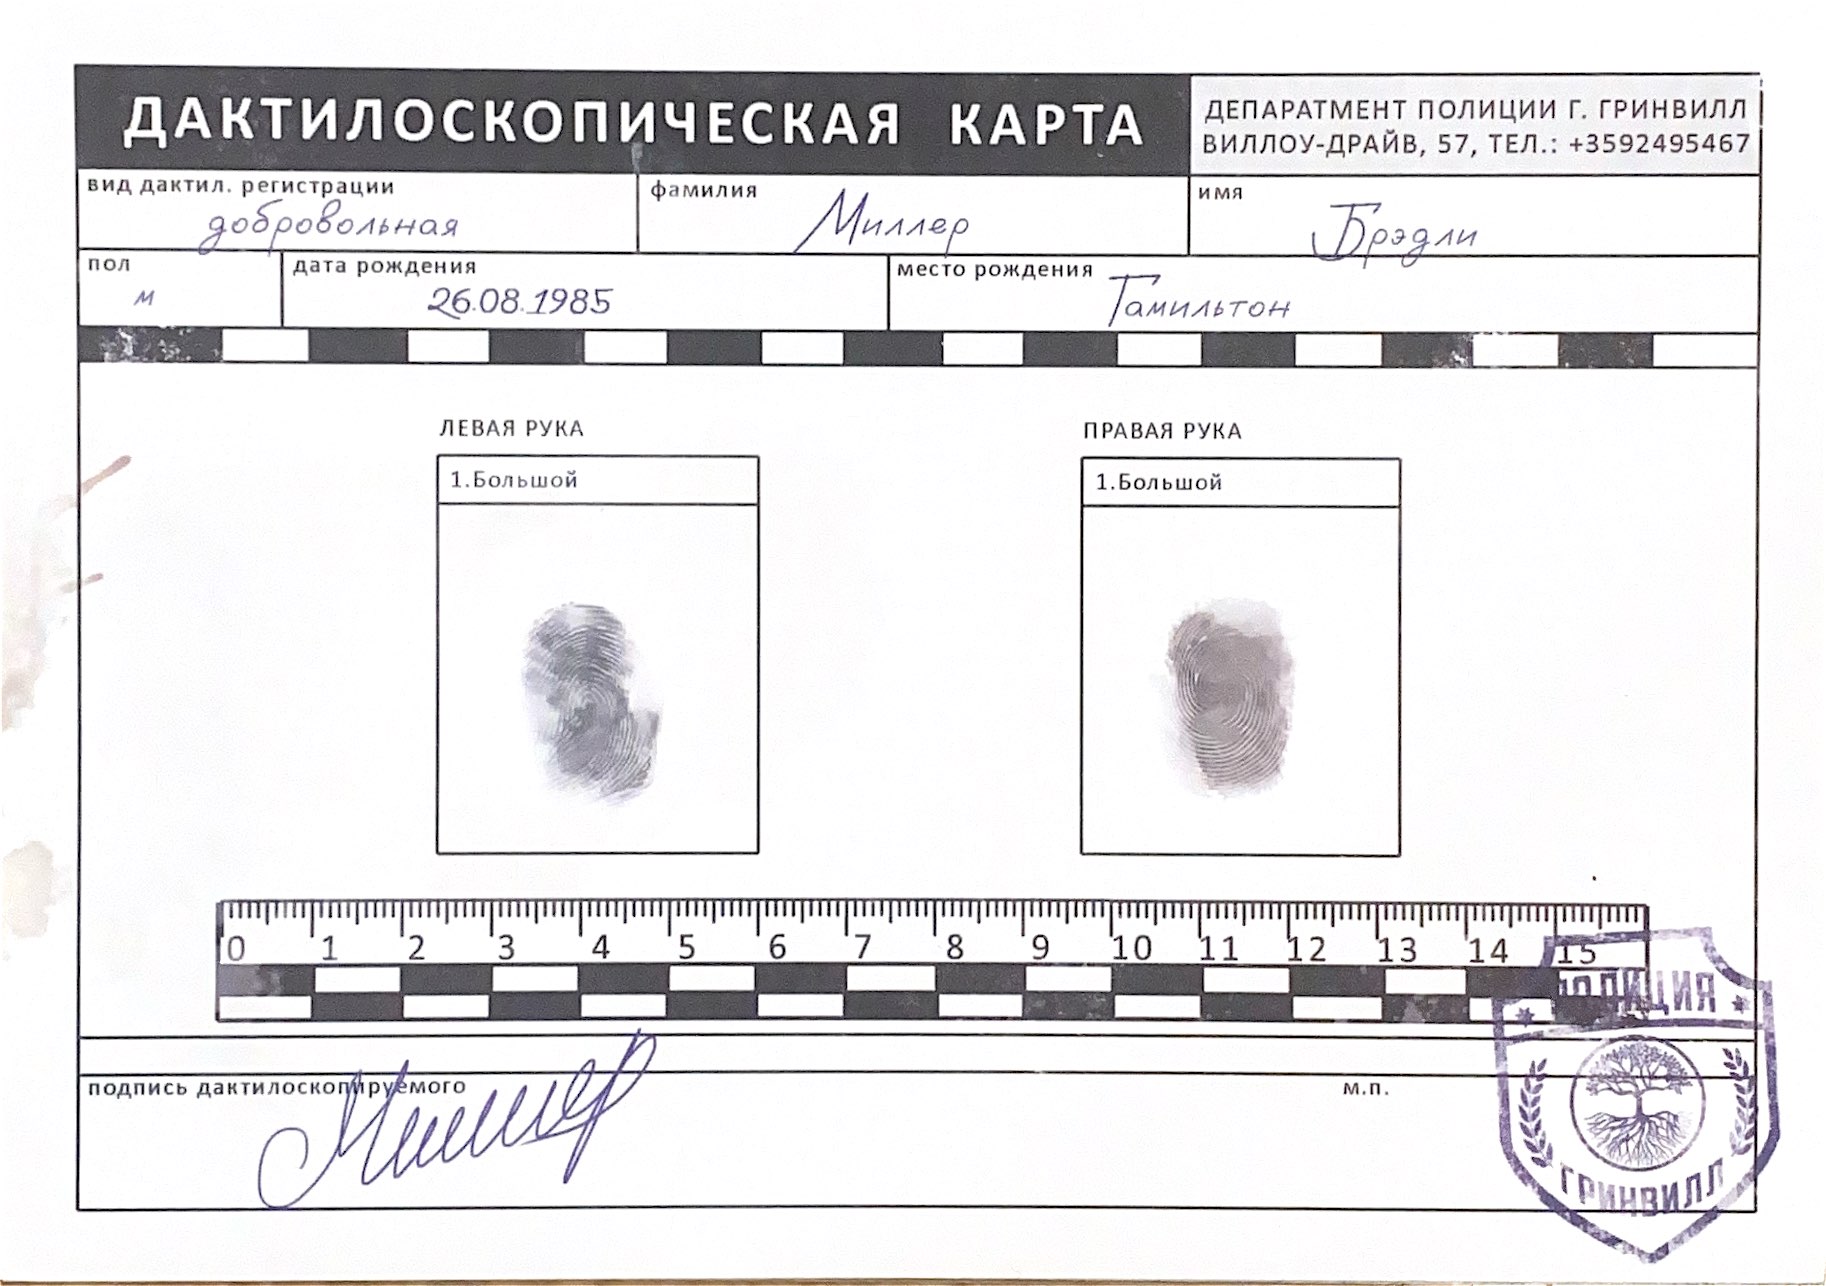 ДАКТИЛОСКОПИЧЕСКАЯ КАРТА
ДЕПАРАТМЕНТ ПОЛИЦИИ Г. ГРИНВИЛЛ
ВИЛЛОУ-ДРАЙВ, 57, ТЕЛ.: +3592495467
вид дактил. регистрации
добровольная
фамилия
Миллер
имя
Брэдли
пол
м
дата рождения
26.08.1985
место рождения
Гамильтон
ЛЕВАЯ РУКА
1.Большой
ПРАВАЯ РУКА
1.Большой
0 1 2 3 4 5 6 7 8 9 10 11 12 13 14 15
подпись дактилоскопируемого
Миллер
м.п.
ПОЛИЦИЯ
ГРИНВИЛЛ